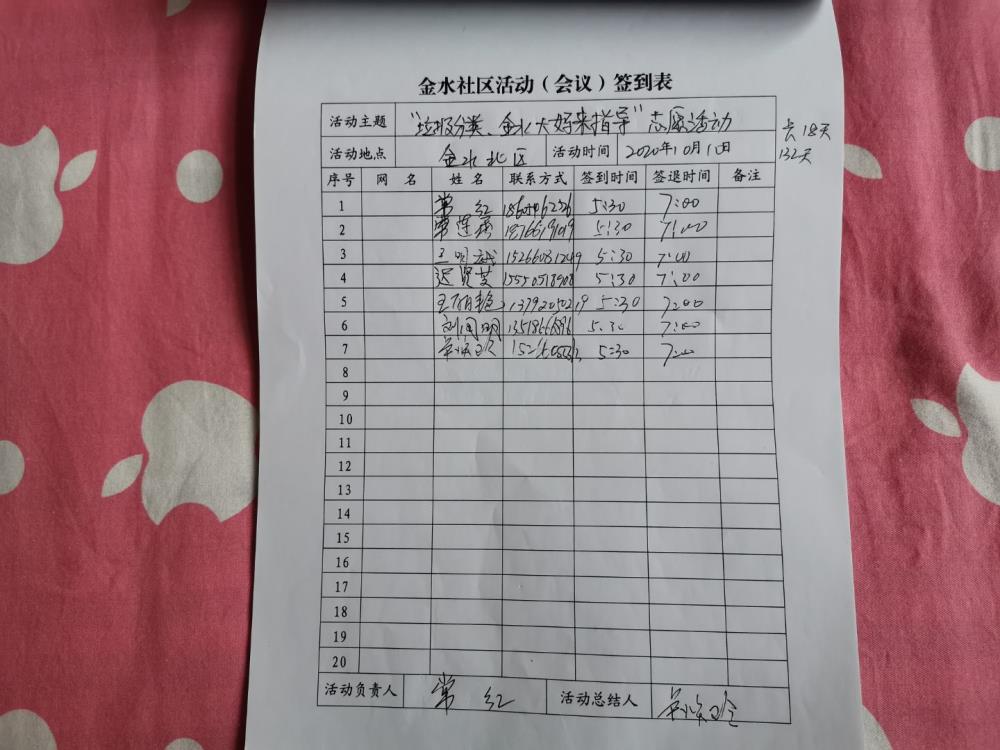 金水社区活动（会议）签到表
活动主题 "垃圾分类、金水大妈来指导"志愿活动
共18天
132天
活动地点 金水北区 活动时间 2020年10月1日
序号 网 名 姓 名 联系方式 签到时间 签退时间 备注
1 常 红 5:30 7:00
2 5:30 7:00
3 王明 15266081249 5:30 7:00
4 迟贤英 15550518908 5:30 7:00
5 王丽艳 5:30 7:00
6 刘同明 5:30 7:00
7 5:30 7:00
8
9
10
11
12
13
14
15
16
17
18
19
20
活动负责人 常 红 活动总结人